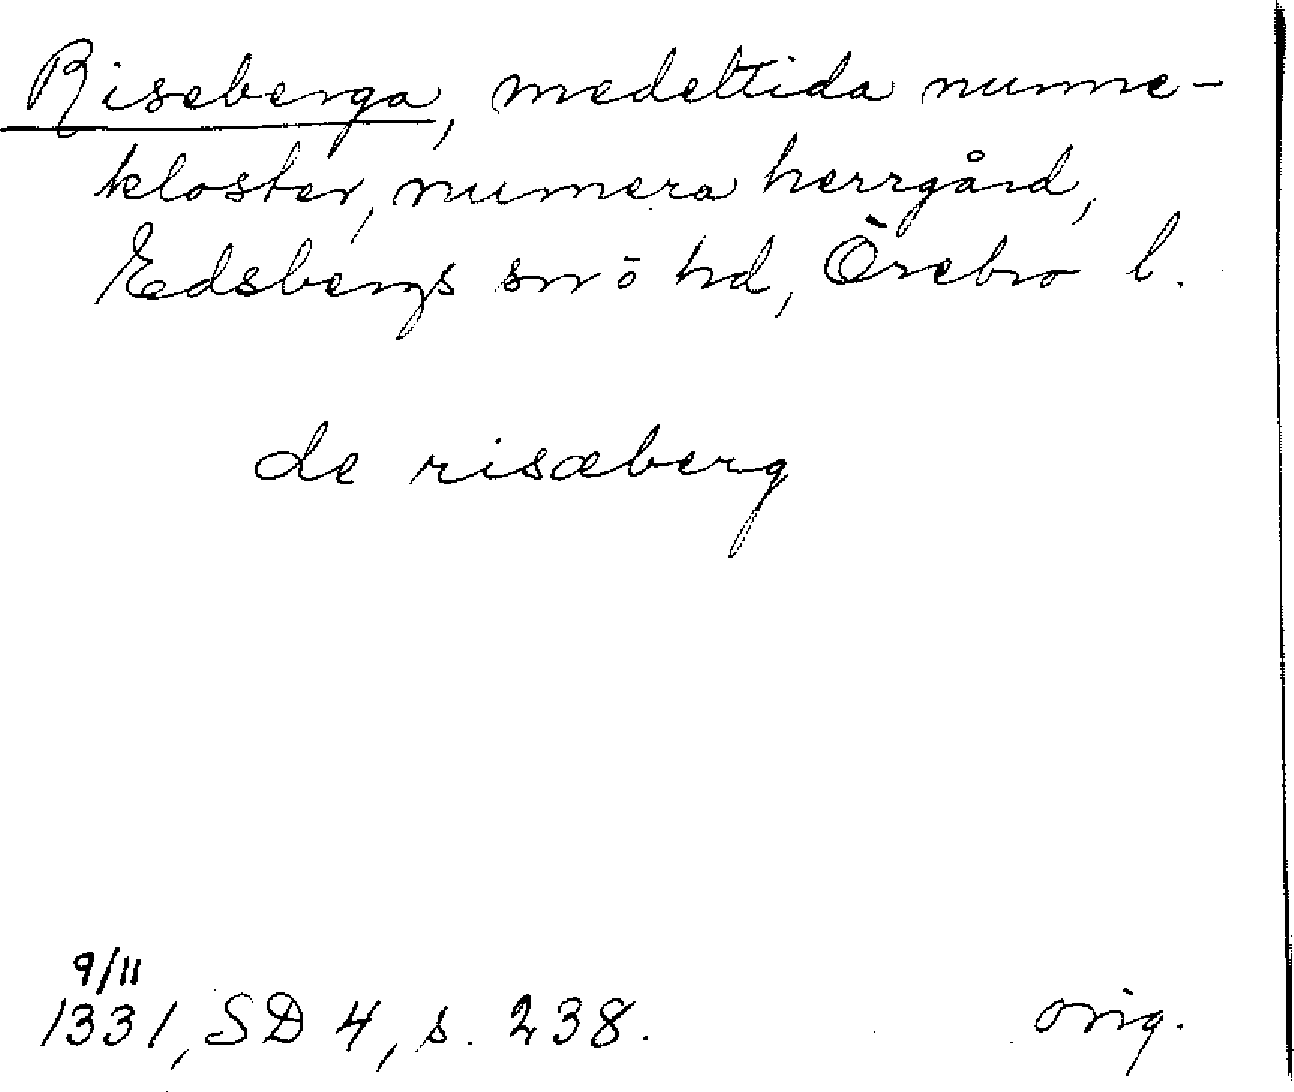 Riseberga, medeltida nunne-
kloster, numera herrgård,
Edsbergs sn o hd, Örebro l.
de risæberg
9/11
1331, SD 4, s. 238. orig.